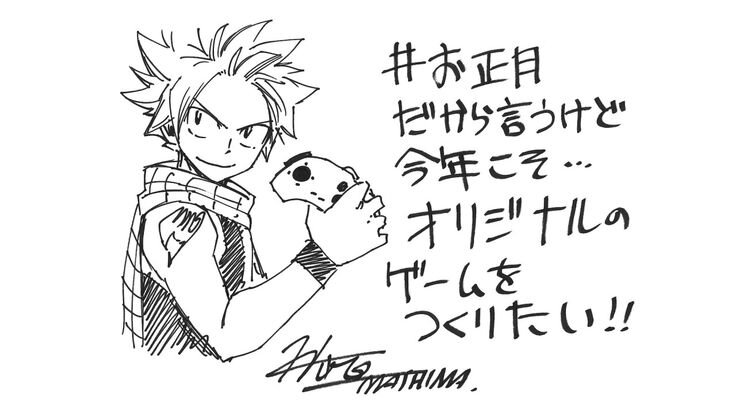 #お正月
だから言うけど
今年こそ…
オリジナルの
ゲームを
つくりたい!!
Hiro MASHIMA.